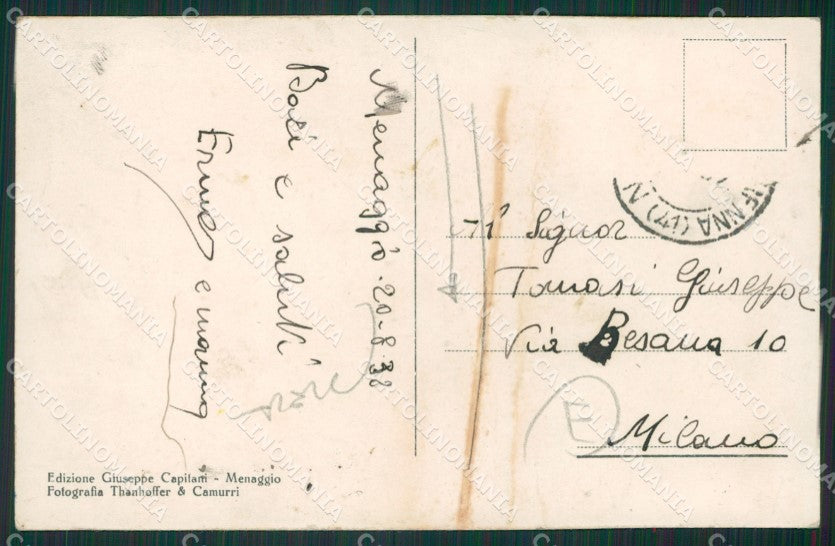 Menaggio. 20-8-38
Baci e saluti
Erma e mamma
Al Signor
Tomasi Giuseppe
Via Besana 10
Milano
E
ENNA (17)
Edizione Giuseppe Capilani - Menaggio
Fotografia Thanhoffer & Camurri
CARTOLINOMANIA